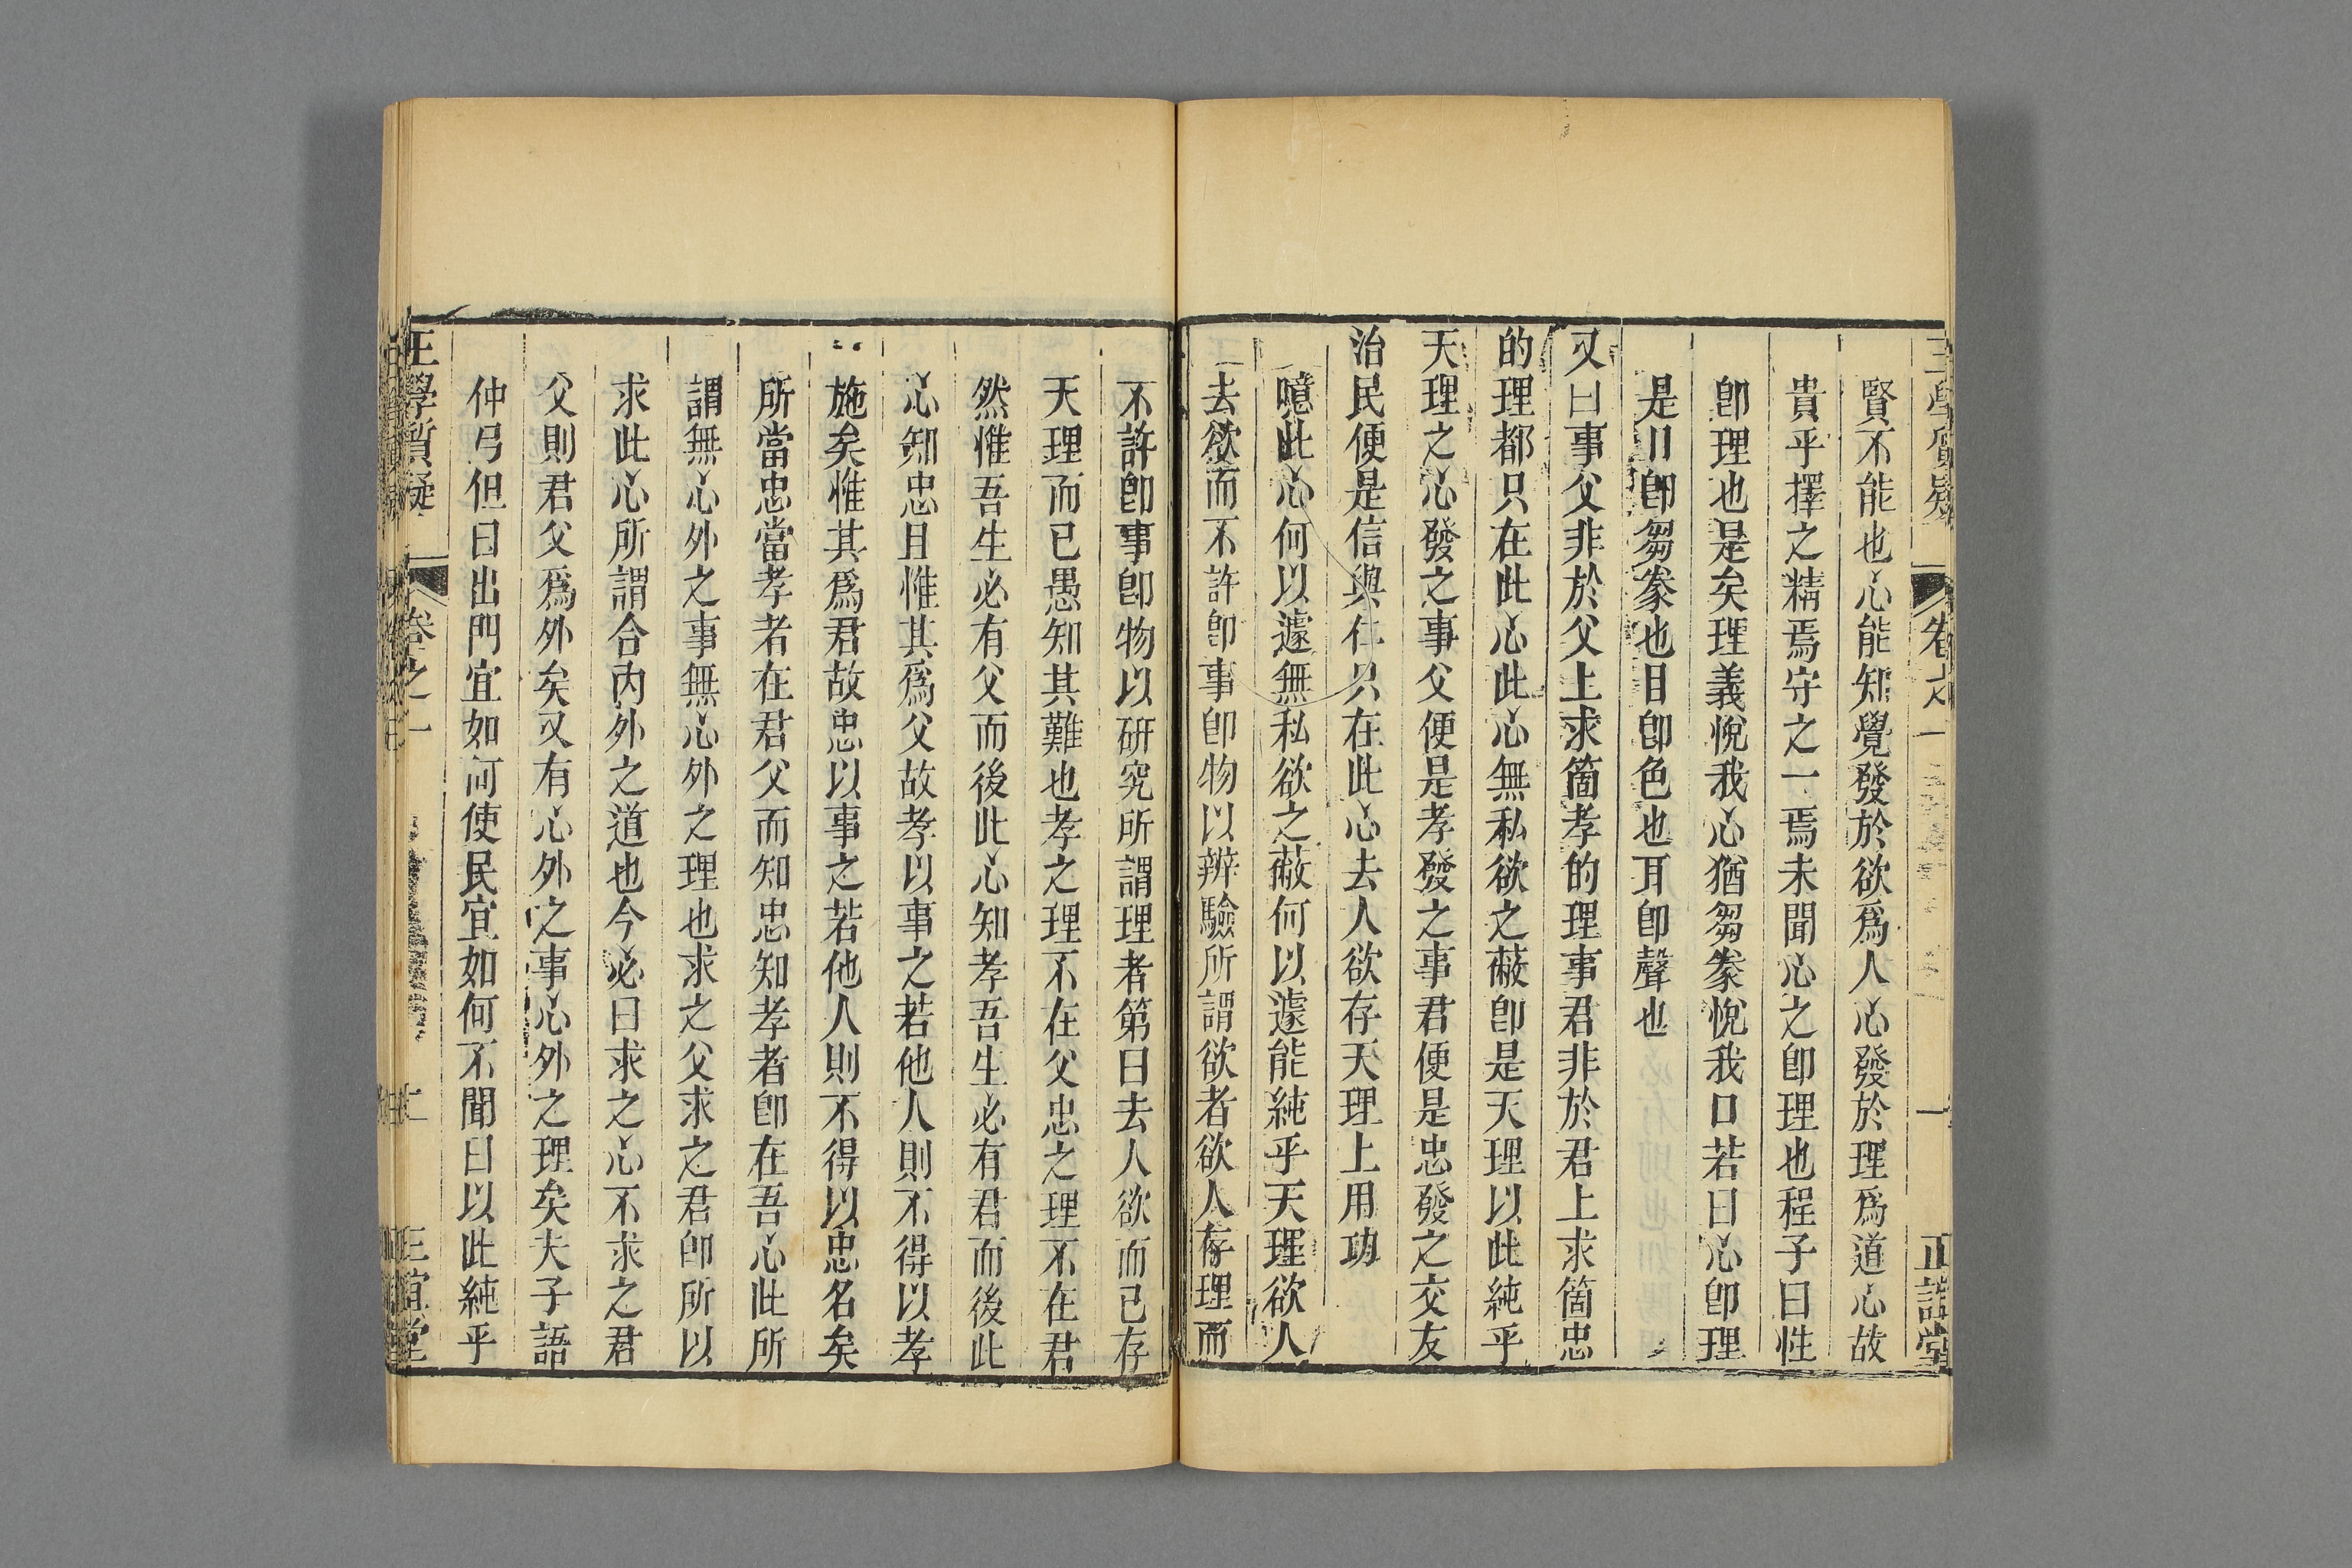 王學質疑 卷之一 一 正誼堂
賢不能也心能知覺發於欲爲人心發於理爲道心故
貴乎擇之精焉守之一焉未聞心之卽理也程子曰性
卽理也是矣理義悅我心猶芻豢悅我口若曰心卽理
是口卽芻豢也目卽色也耳卽聲也
又曰事父非於父上求箇孝的理事君非於君上求箇忠
的理都只在此心此心無私欲之蔽卽是天理以此純乎
天理之心發之事父便是孝發之事君便是忠發之交友
治民便是信與仁只在此心去人欲存天理上用功
噫此心何以遽無私欲之蔽何以遽能純乎天理欲人
去欲而不許卽事卽物以辨驗所謂欲者欲人存理而
不許卽事卽物以硏究所謂理者第曰去人欲而已存
天理而已愚知其難也孝之理不在父忠之理不在君
然惟吾生必有父而後此心知孝吾生必有君而後此
心知忠且惟其爲父故孝以事之若他人則不得以孝
施矣惟其爲君故忠以事之若他人則不得以忠名矣
所當忠當孝者在君父而知忠知孝者卽在吾心此所
謂無心外之事無心外之理也求之父求之君卽所以
求此心所謂合內外之道也今必曰求之心不求之君
父則君父爲外矣又有心外之事心外之理矣夫子語
仲弓但曰出門宜如何使民宜如何不聞曰以此純乎
王學質疑 卷之一 二 正誼堂